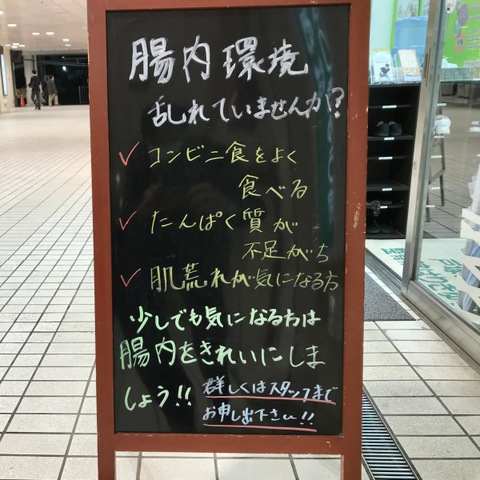 腸内環境
乱れていませんか?
✓コンビニ食をよく
食べる
✓たんぱく質が
不足がち
✓肌荒れが気になる方
少しでも気になる方は
腸内をきれいにしま
しょう!!
詳しくはスタッフまで
お申し出下さい!!